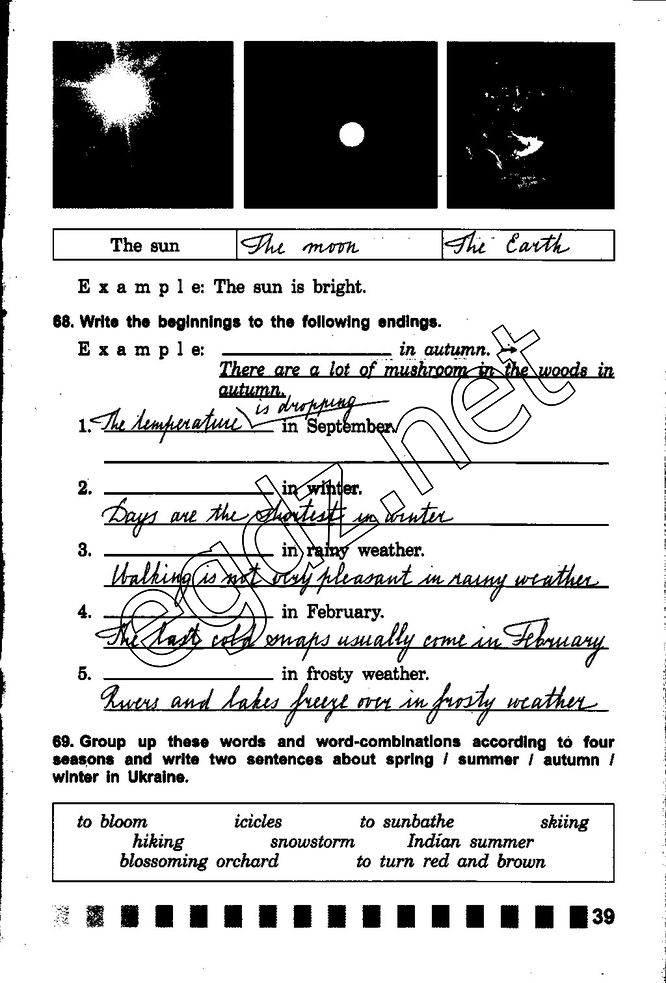 The sun The moon The Earth
E x a m p l e: The sun is bright.
68. Write the beginnings to the following endings.
E x a m p l e: ____________ in autumn. →
There are a lot of mushroom in the woods in
autumn.
is dropping
1. The temperature in September.
2. ____________ in winter.
Days are the shortest in winter
3. ____________ in rainy weather.
Walking is not very pleasant in rainy weather
4. ____________ in February.
The last cold snaps usually come in February
5. ____________ in frosty weather.
Rivers and lakes freeze over in frosty weather
69. Group up these words and word-combinations according to four
seasons and write two sentences about spring / summer / autumn /
winter in Ukraine.
to bloom icicles to sunbathe skiing
hiking snowstorm Indian summer
blossoming orchard to turn red and brown
39
egdz.net